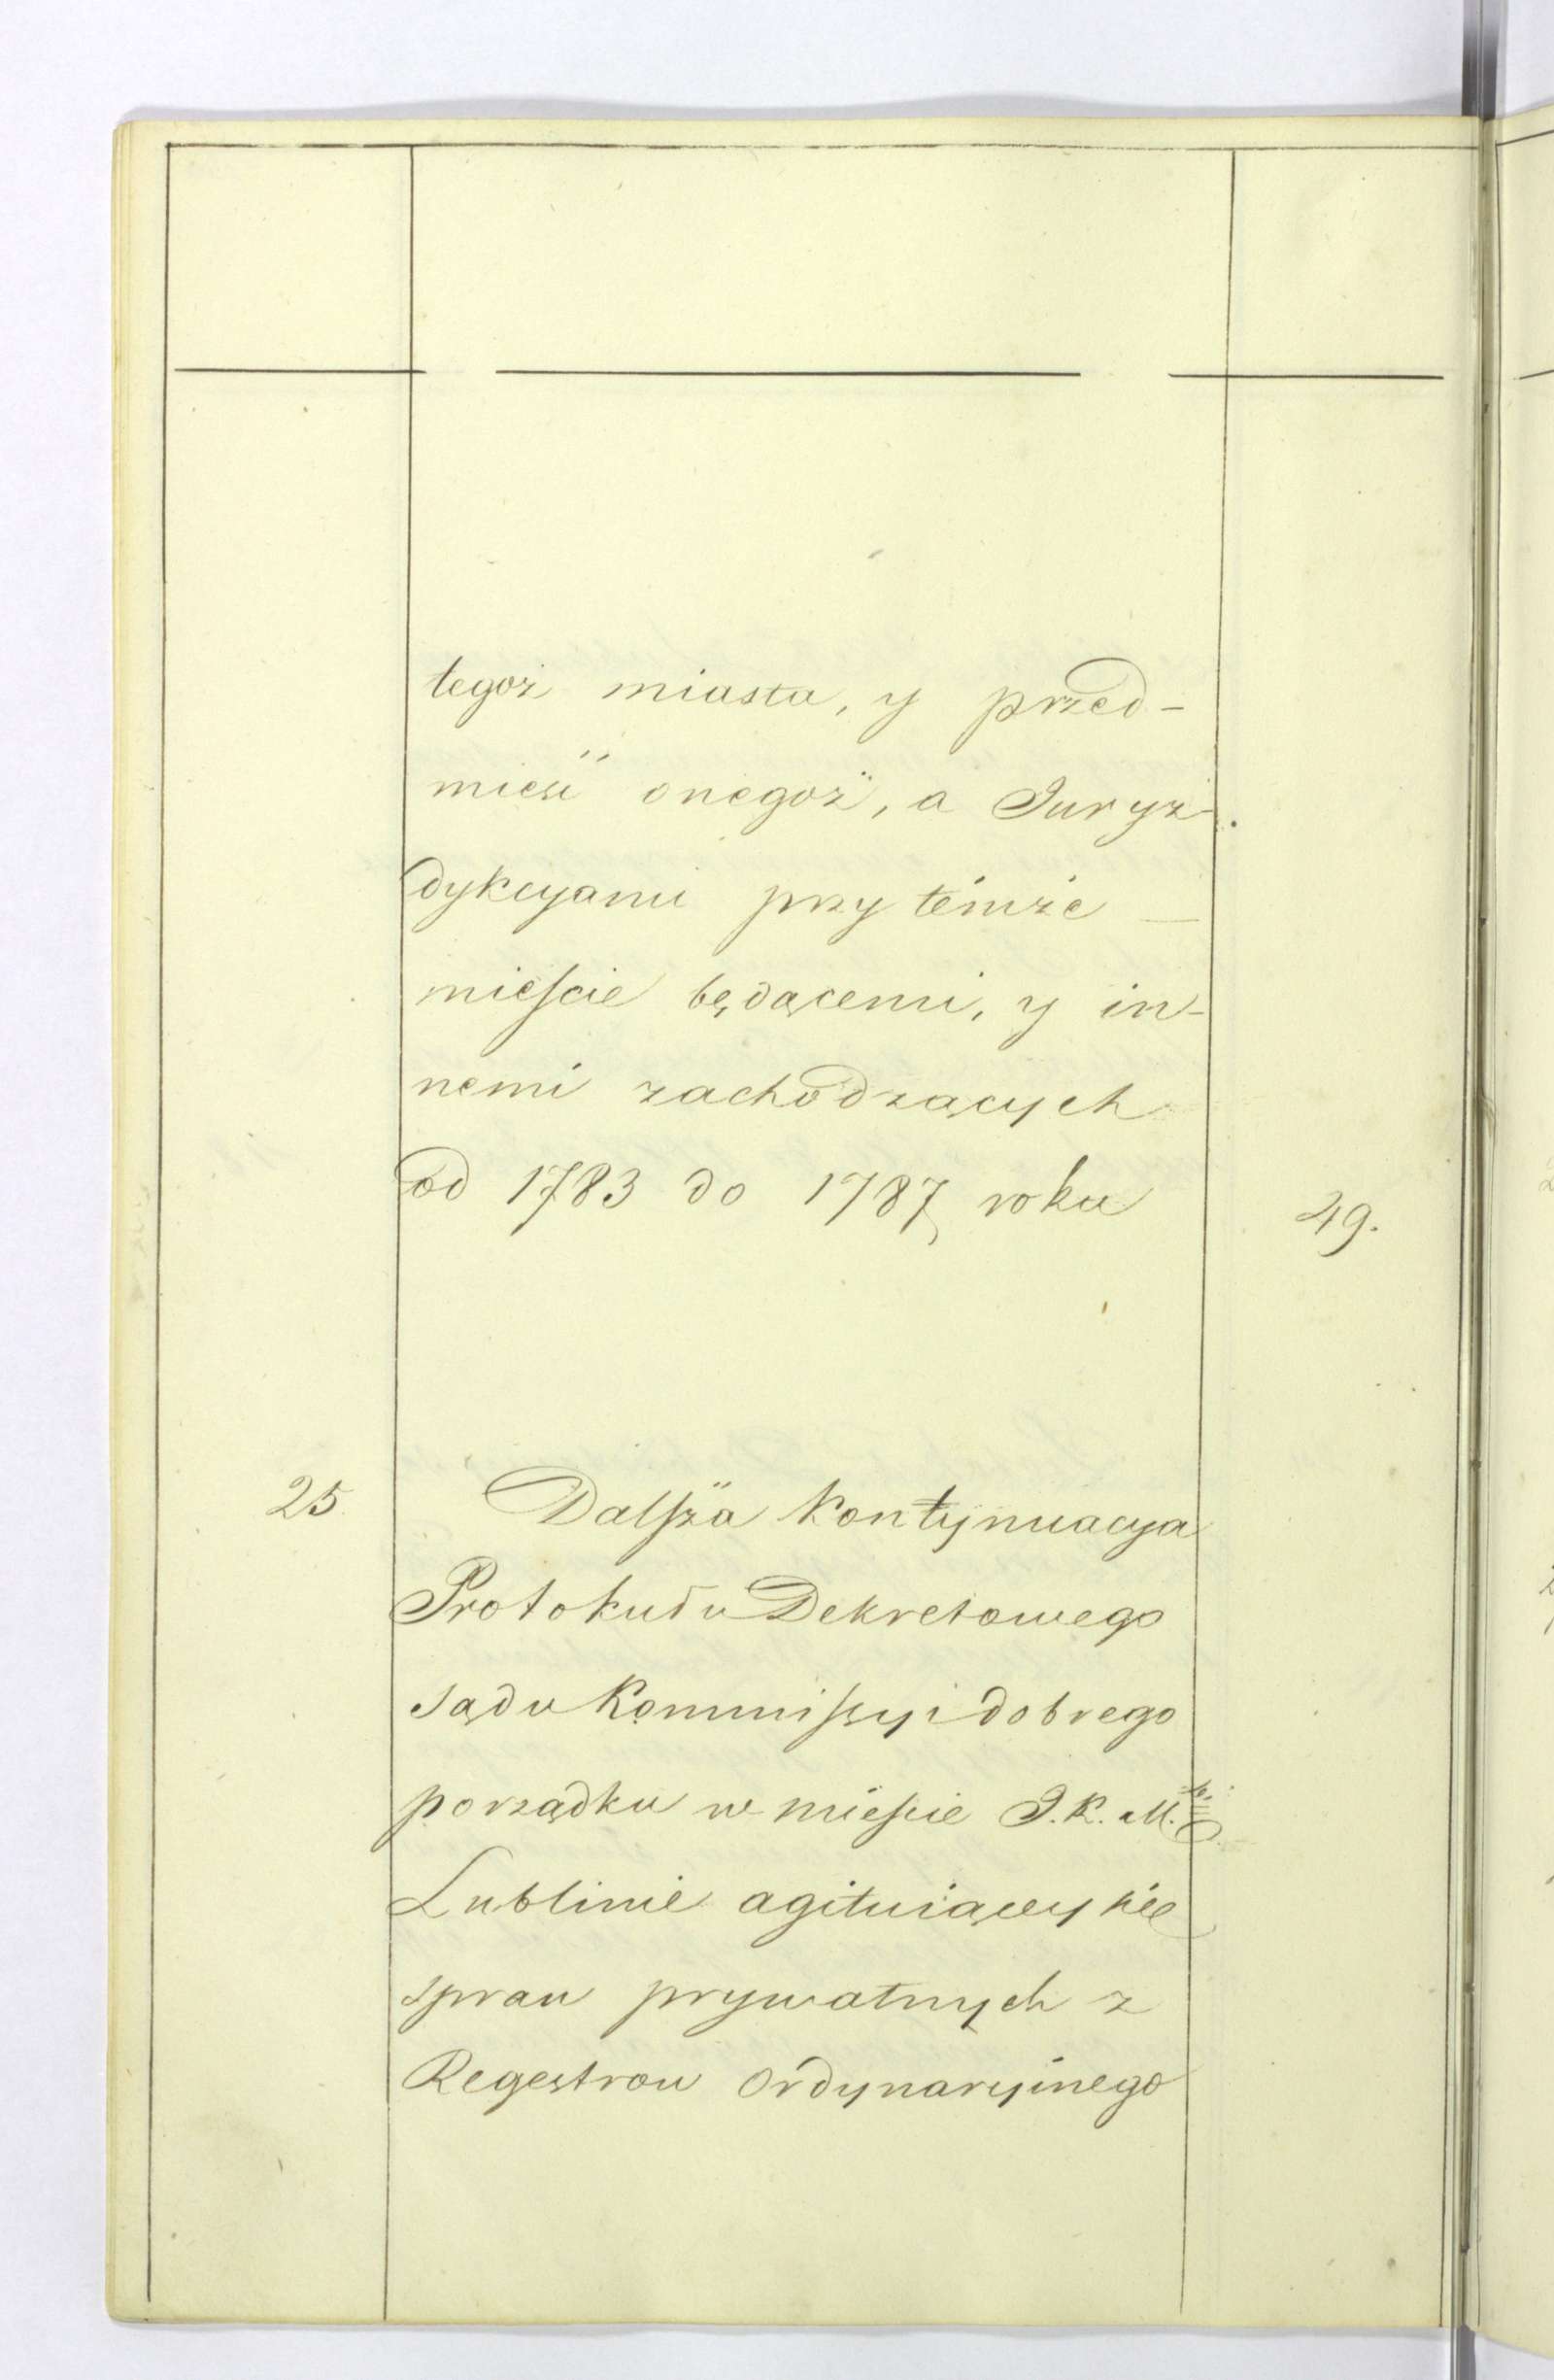 tegoż miasta, y przed-
mieść onegoż, a Juryz-
dykcyami przy témże —
mieście będącemi, y in-
nemi zachodzących
od 1783 do 1787 roku
49.
25 Dalsza kontynuacya
Protokułu Dekretowego
sądu Kommissyi dobrego
porządku w mieście J. K. M.
Lublinie agituiącey się
spraw prywatnych z
Regestrow Ordynaryinego